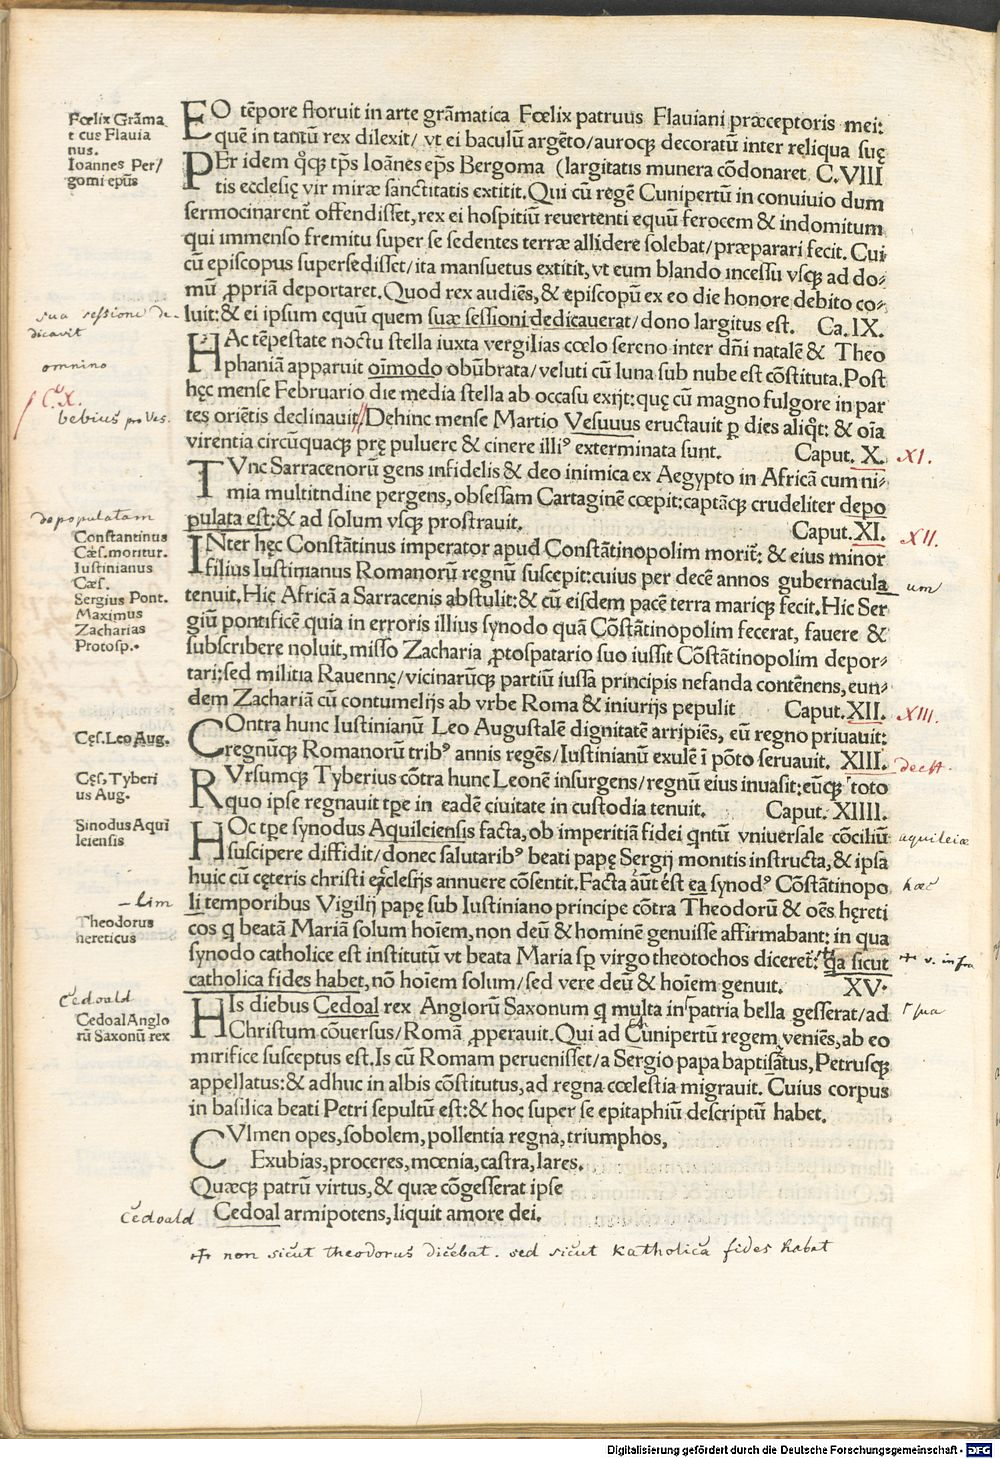 Fœlix Grãma
t cus Flauia
nus.
Ioannes Per/
gomi epũs
EO tẽpore floruit in arte grãmatica Fœlix patruus Flauiani præceptoris mei:
quẽ in tantũ rex dilexit/ vt ei baculũ argẽto/auroqꝫ decoratũ inter reliqua suę
PEr idem qͦqꝫ tp̃s Ioãnes ep̃s Bergoma (largitatis munera cõdonaret C.VIII
tis ecclesię vir miræ sanctitatis extitit. Qui cũ regẽ Cunipertũ in conuiuio dum
sermocinarent̃ offendisset, rex ei hospitiũ reuertenti equũ ferocem & indomitum
qui immenso fremitu super se sedentes terræ allidere solebat/præparari fecit. Cui
cũ episcopus supersedisset/ita mansuetus extitit, vt eum blando incessu vsqꝫ ad do-
mũ ꝓpriã deportaret. Quod rex audiẽs, & episcopũ ex eo die honore debito co-
luit: & ei ipsum equũ quem suæ sessioni dedicauerat/dono largitus est. Ca.IX.
sua sessione de-
dicavit
HAc tẽpestate noctu stella iuxta vergilias cœlo sereno inter dñi natalẽ & Theo
phaniã apparuit oĩmodo obũbrata/veluti cũ luna sub nube est cõstituta. Post
omnino
hęc mense Februario die media stella ab occasu exijt: quę cũ magno fulgore in par
C. X.
tes oriẽtis declinauit// Dehinc mense Martio Vesuuus eructauit ꝑ dies aliqt̃: & oĩa
bebius pro Ves.
virentia circũquaqꝫ pre puluere & cinere illiꝰ exterminata sunt. Caput. X. XI.
TVnc Sarracenorũ gens infidelis & deo inimica ex Aegypto in Africã cum ni-
mia multitndine pergens, obsessam Cartaginẽ cœpit: captãqꝫ crudeliter depo
depopulatam
pulata est: & ad solum vsqꝫ prostrauit. Caput. XI. XII.
Constantinus
Cæs. moritur.
Iustinianus
Cæs.
Sergius Pont.
Maximus
Zacharias
Protosp.
INter hęc Constãtinus imperator apud Constãtinopolim morit̃: & eius minor
filius Iustinianus Romanorũ regnũ suscepit: cuius per decẽ annos gubernacula um
tenuit. Hic Africã a Sarracenis abstulit: & cũ eisdem pacẽ terra mariqꝫ fecit. Hic Ser
giũ pontificẽ quia in erroris illius synodo quã Cõstãtinopolim fecerat, fauere &
subscribere noluit, misso Zacharia ꝓtospatario suo iussit Cõstãtinopolim depor-
tari: sed militia Rauennę/vicinarũqꝫ partiũ iussa principis nefanda contẽnens, eun-
dem Zachariã cũ contumelijs ab vrbe Roma & iniurijs pepulit Caput. XII. XIII.
COntra hunc Iustinianũ Leo Augustalẽ dignitatẽ arripiẽs, eũ regno priuauit:
Cęs. Leo Aug.
regnũqꝫ Romanorũ tribꝰ annis regẽs/Iustinianũ exulẽ ĩ põto seruauit. XIII. deest.
Cęs. Tyberi
us Aug.
RVrsumqꝫ Tyberius cõtra hunc Leonẽ insurgens/regnũ eius inuasit: eũqꝫ toto
quo ipse regnauit tꝑe in eadẽ ciuitate in custodia tenuit. Caput. XIIII.
Sinodus Aqui
leiensis
HOc tꝑe synodus Aquileiensis facta, ob imperitiã fidei qntũ vniuersale cõciliũ aquileiæ
suscipere diffidit/donec salutaribꝰ beati papę Sergij monitis instructa, & ipsa
huic cũ cęteris christi ecclesijs annuere cõsentit. Facta aũt est ea synodꝰ Cõstãtinopo hæc
– lim
li temporibus Vigilij papę sub Iustiniano principe cõtra Theodorũ & oẽs hęreti
Theodorus
hereticus
cos q beatã Mariã solum hoĩem, non deũ & hominẽ genuisse affirmabant: in qua
synodo catholice est institutũ vt beata Maria sꝑ virgo theotochos diceret̃: qa sicut v. infra
catholica fides habet, nõ hoĩem solum/sed vere deũ & hoĩem genuit. XV.
Cedoald
Cedoal Anglo
rũ Saxonũ rex
HIs diebus Cedoal rex Anglorũ Saxonum q multa in patria bella gesserat/ad sua
Christum cõuersus/Romã ꝓperauit. Qui ad Cunipertũ regem veniẽs, ab eo
mirifice susceptus est. Is cũ Romam peruenisset/a Sergio papa baptisatus, Petrusqꝫ
appellatus: & adhuc in albis cõstitutus, ad regna cœlestia migrauit. Cuius corpus
in basilica beati Petri sepultũ est: & hoc super se epitaphiũ descriptũ habet.
CVlmen opes, sobolem, pollentia regna, triumphos,
Exubias, proceres, mœnia, castra, lares.
Quæcqꝫ patrũ virtus, & quæ cõgesserat ipse
Cedoald Cedoal armipotens, liquit amore dei.
non sicut theodorus dicebat. sed sicut katholica fides habet
Digitalisierung gefördert durch die Deutsche Forschungsgemeinschaft - DFG